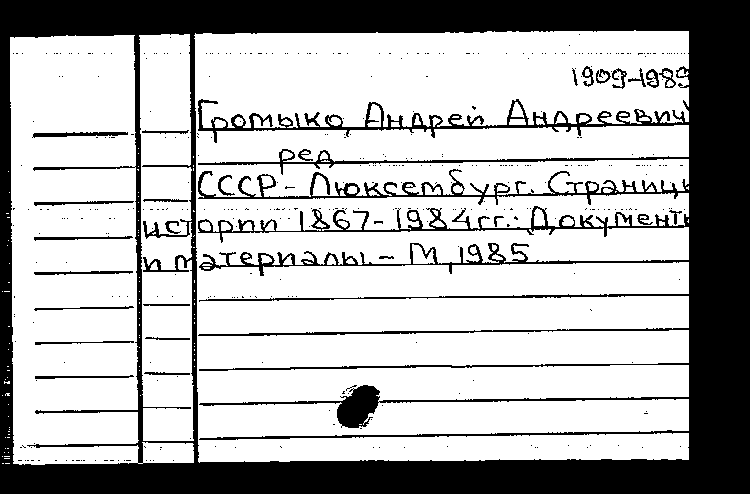 1909-1989
Громыко, Андрей Андреевич
ред
СССР - Люксембург. Страницы
истории 1867-1984гг.: Документы
и материалы. - М, 1985